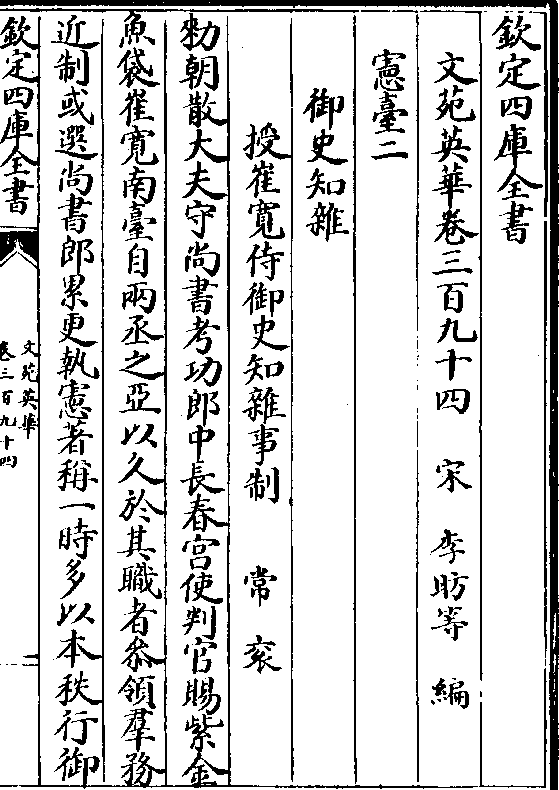 欽定四庫全書
文苑英華卷三百九十四　宋　李昉等　編
憲臺二
御史知雜
授崔寛侍御史知雜事制　常袞
勑朝散大夫守尚書考功郎中長春宫使判官賜紫金
魚袋崔寛南臺自兩丞之亞以久於其職者叅領羣務
近制或選尚書郎累更執憲著稱一時多以本秩行御
欽定四庫全書
文苑英華
卷三百九十四